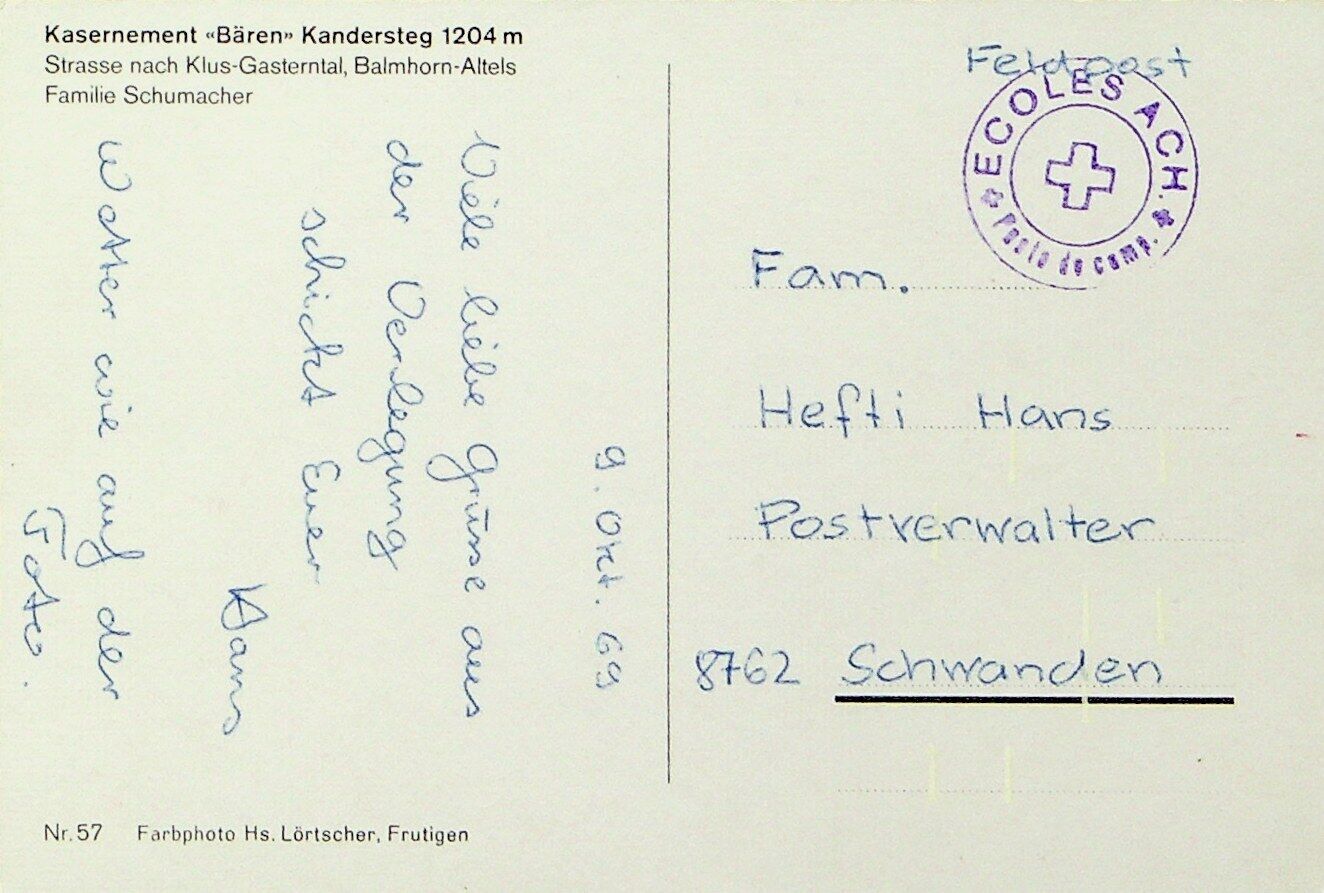 Kasernement «Bären» Kandersteg 1204 m
Strasse nach Klus-Gasterntal, Balmhorn-Altels
Familie Schumacher
9. Okt. 69
Viele liebe Grüsse aus
der Verlegung
schickt Euer
Hans
Wetter wie auf der
Foto.
Feldpost
ECOLES ACH.
Poste de camp.
Fam.
Hefti Hans
Postverwalter
8762 Schwanden
Nr. 57 Farbphoto Hs. Lörtscher, Frutigen